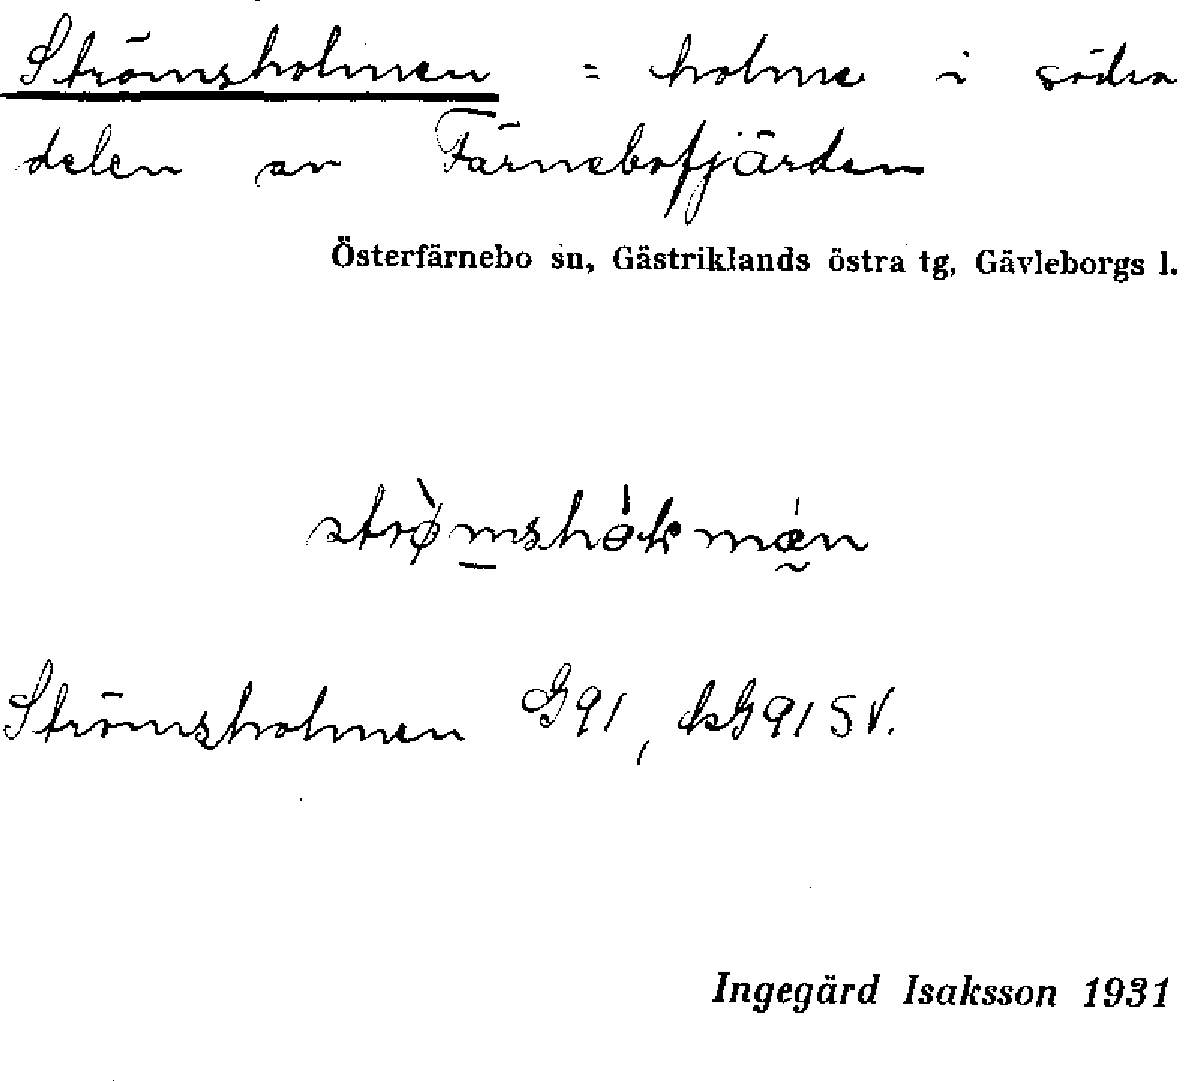 Strömsholmen = holme i södra
delen av Färnebofjärden
Österfärnebo sn, Gästriklands östra tg, Gävleborgs l.
Strömsholmen G91, kG91 SV.
Ingegärd Isaksson 1931